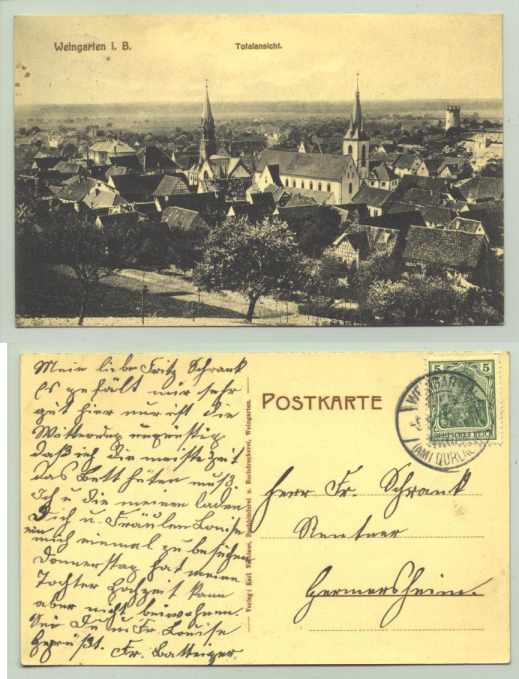 Weingarten i. B.
Totalansicht.
Mein liebe Fritz Schrank
Es gefällt mir sehr
gut hier nur ist die
Witterung ungünstig
daß ich die meiste Zeit
das Bett hüten muß.
Ich u die meinen laden
Dich u. Fräulen Louise
ein mich einmal zu besuchen
Donnerstag hat meine
Tochter Hochzeit kann
aber nicht beiwohnen.
Sei Du u Fr. Louise
Gegrüßt.
Fr. Batteiger.
Verlag: Karl Buchdruckerei, Weingarten.
POSTKARTE
5 5
DEUTSCHES REICH
WEINGARTEN
(AMT DURLACH)
Herr Fr. Schrank
Rentner
Germersheim.